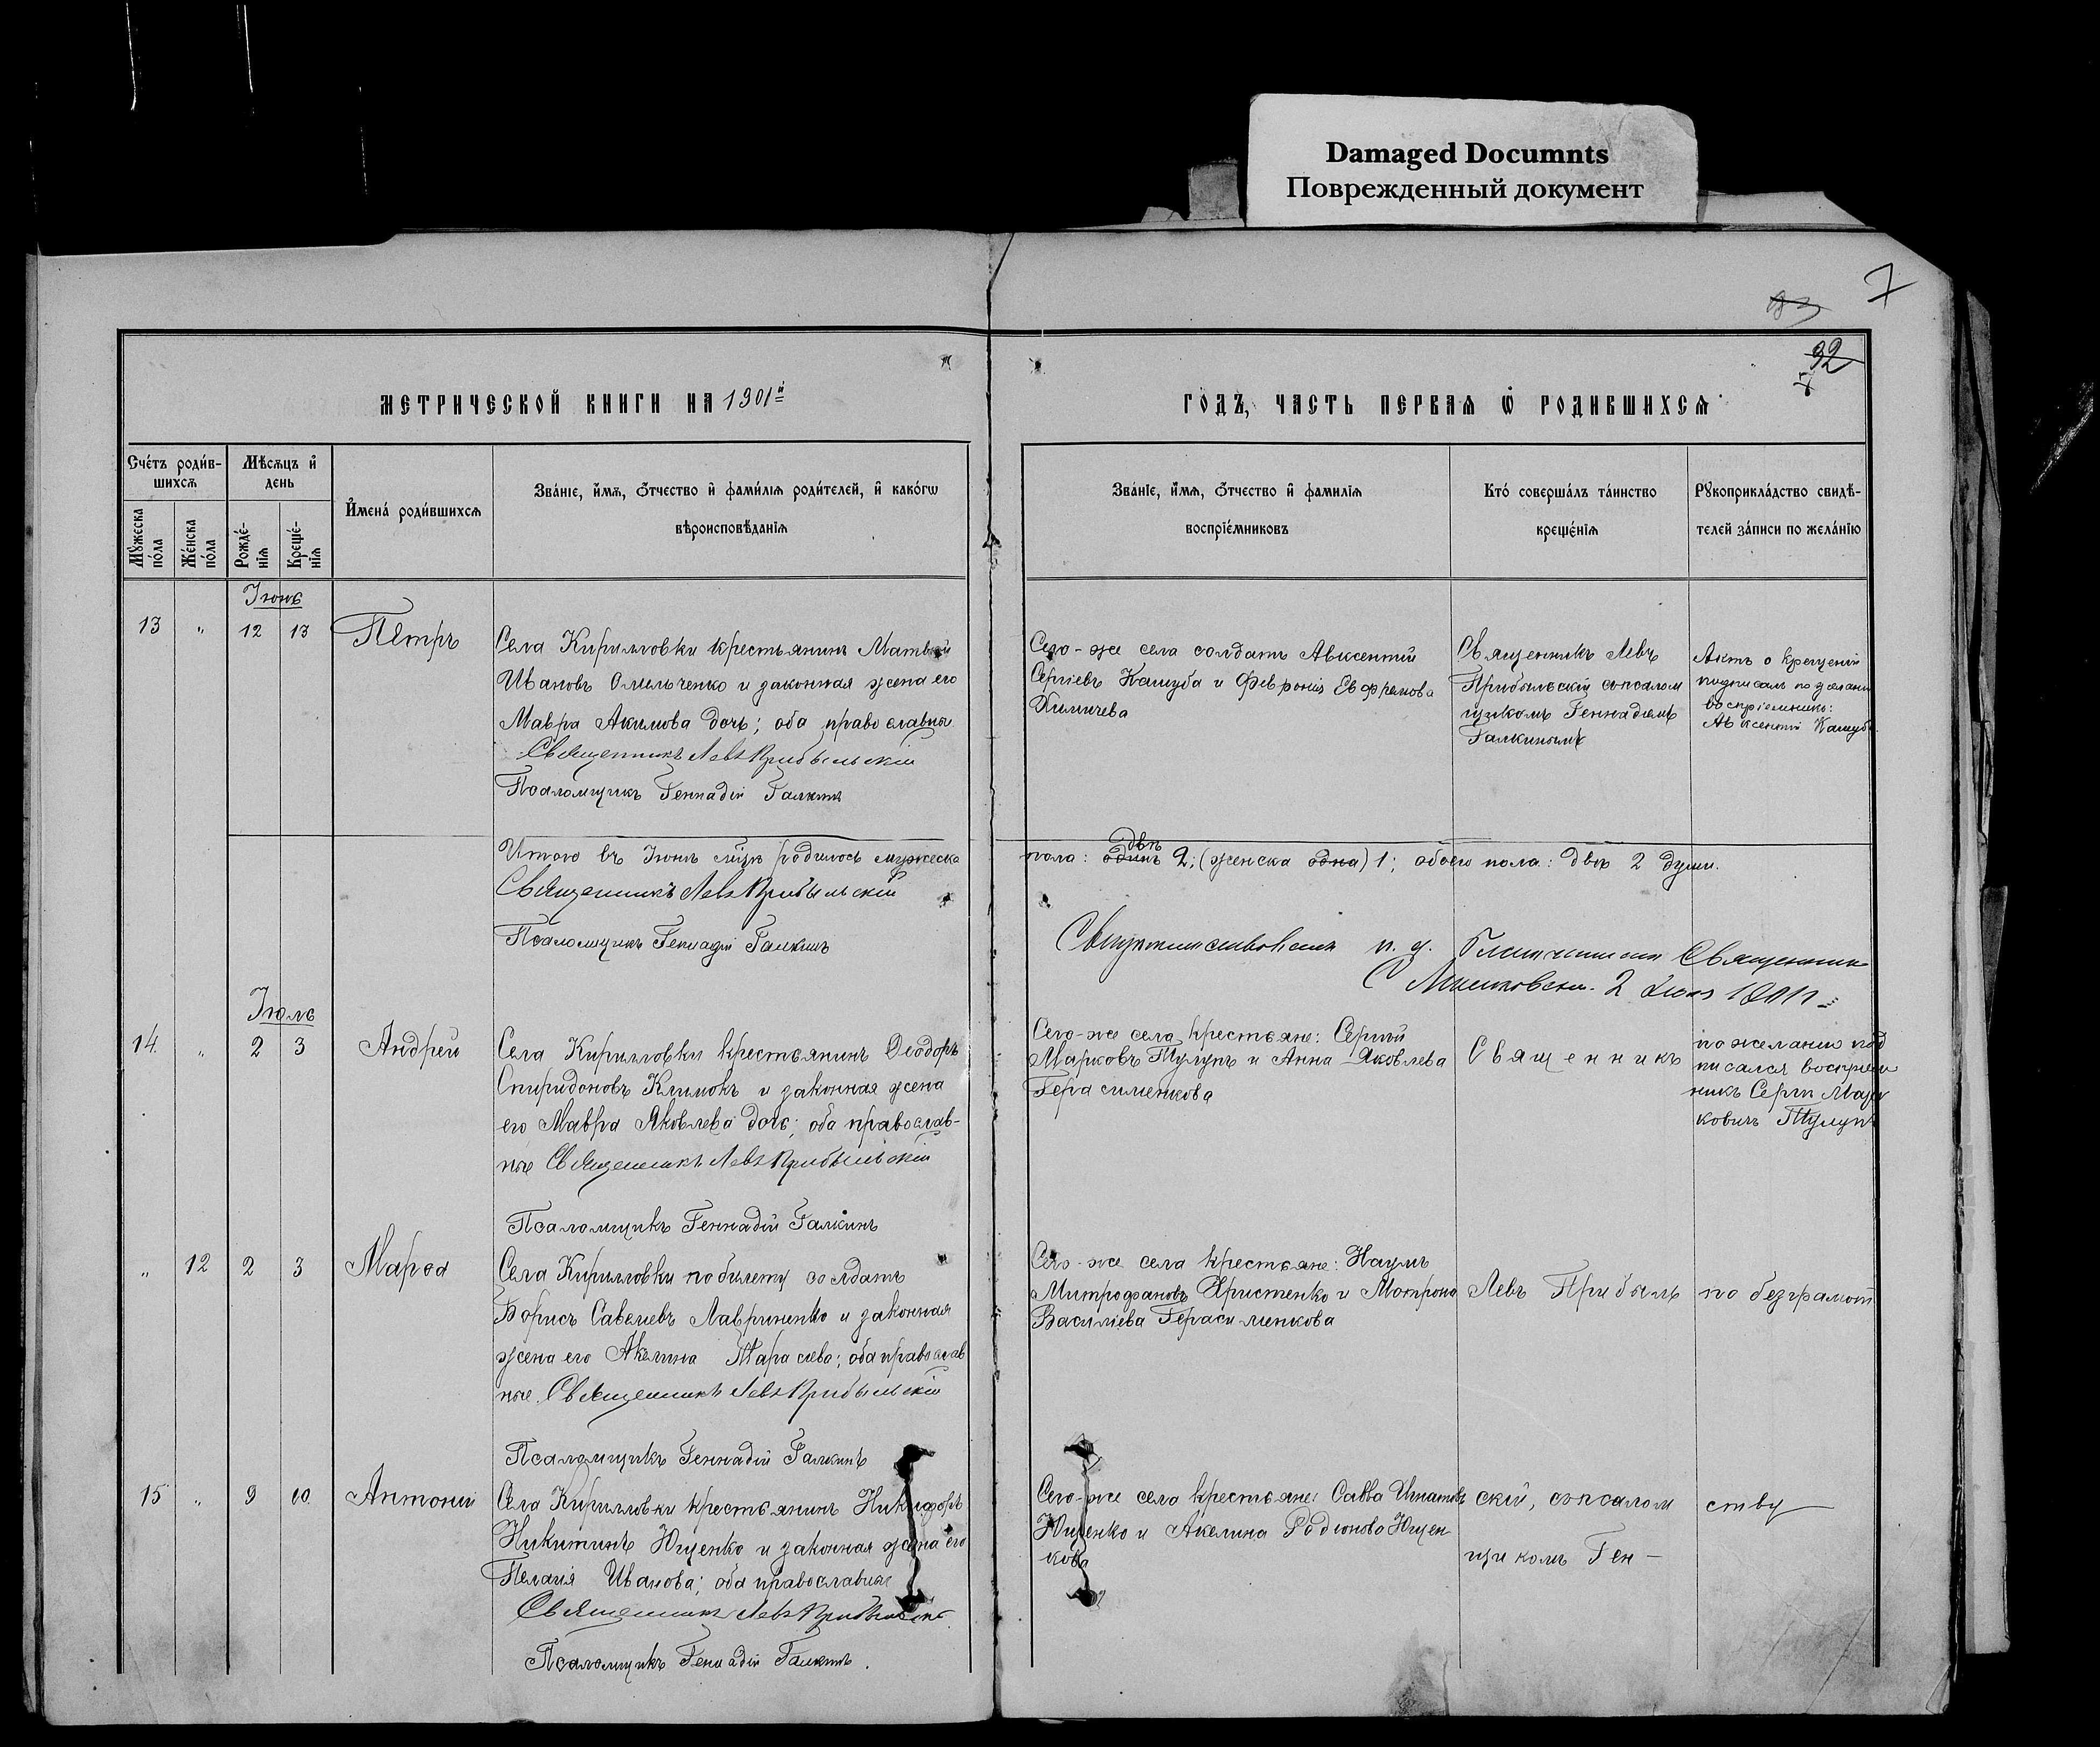 Damaged Documnts
Поврежденный документ
7
92
МЕТРИЧЕСКОЙ КНИГИ НА 1901й
ГОДЪ, ЧАСТЬ ПЕРВАЯ Ѡ РОДИВШИХСЯ
Счётъ роди́в-
шихсѧ
Мѣсѧцъ и҆
день
И҆мена́ роди́вшихсѧ
Зва́нїе, и҆́мѧ, ѻ҆́тчество и҆ фами́лїѧ роди́телей, и҆ како́гѡ
вѣроисповѣ́данїѧ
Мꙋ́жеска
по́ла
Же́нска
по́ла
Рожде́-
нїѧ
Креще́-
нїѧ
Зва́нїе, и҆́мѧ, ѻ҆́тчество и҆ фамилїѧ
воспрїе́мниковъ
Кто́ соверша́лъ та́инство
креще́нїѧ
Рꙋкоприкла́дство свидѣ́-
телей за́писи по жела́нїю
Іюнь
13 " 12 13 Петръ
Села Кирилловки крестьянинъ Матвѣй
Ивановъ Омельченко и законная жена его
Мавра Акимова дочь; оба православные
Священникъ Левъ Прибыльскій
Псаломщикъ Геннадій Галкинъ
Сего-же села солдатъ Авксентій
Сергіевъ Кашуба и Февронія Евфремова
Климчева
Священникъ Левъ
Прибыльскій съ псалом
щикомъ Геннадіемъ
Галкинымъ
Актъ о крещеніи
подписалъ по желанію
воспріемникъ:
Авксентій Кашуба
Итого въ Іюнѣ мцѣ родилось мужеска
пола: одинъ двѣ 2; (женска одна) 1; обоего пола: двѣ 2 души.
Священникъ Левъ Прибыльскій
Псаломщикъ Геннадій Галкинъ
и. д. Священникъ
С. 2 1901 г.
Іюль
14 " 2 3 Андрей
Села Кирилловки крестьянинъ Ѳеодоръ
Спиридоновъ Климокъ и законная жена
его Мавра Яковлева дочь; оба православ-
ные Священникъ Левъ Прибыльскій
Псаломщикъ Геннадій Галкинъ
Сего-же села крестьяне: Сергій
Марковъ Тулупъ и Анна Яковлева
Герасименкова
Священникъ
по желанію под
писался воспріем
никъ Сергій Мар
ковичъ Тулупъ
" 12 2 3 Марѳа
Села Кирилловки по билету солдатъ
Борисъ Савельевъ Лавриненко и законная
жена его Акелина Тарасіева; оба православ
ные. Священникъ Левъ Прибыльскій
Псаломщикъ Геннадій Галкинъ
Сего-же села крестьяне: Наумъ
Митрофановъ Христенко и Матрона
Василіева Герасименкова
Левъ Прибыль
по безграмот
15 " 9 10 Антоній
Села Кирилловки крестьянинъ Никифоръ
Никитинъ Ющенко и законная жена его
Пелагія Иванова; оба православные
Священникъ Левъ Прибыльскій
Псаломщикъ Геннадій Галкинъ.
Сего-же села крестьяне: Савва Игнатовъ
Ющенко и Акелина Родіонова Ющен
кова
скій, съ псалом
щикомъ Ген-
ству